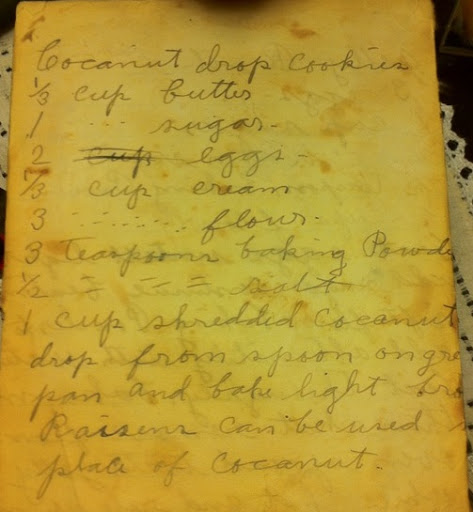 Cocanut drop cookies
1/3 cup butter
1 " " sugar.
2 cup eggs -
1/3 cup cream
3 " " " flour.
3 Teaspoons baking Powde
1/2 " " " salt
1 cup shredded cocanut
drop from spoon on gre
pan and bake light bro
Raisens can be used
place of cocanut.